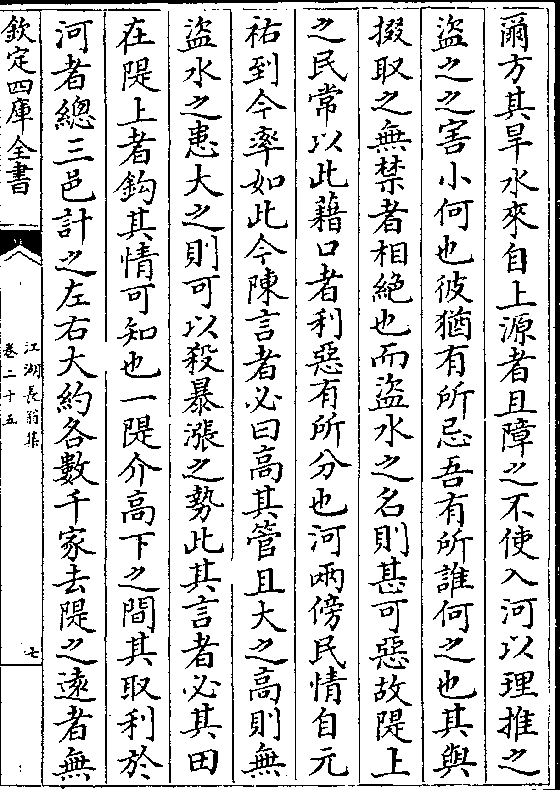 爾方其旱水來自上源者且障之不使入河以理推之
盜之之害小何也彼猶有所忌吾有所誰何之也其與
掇取之無禁者相絶也而盜水之名則甚可惡故隄上
之民常以此藉口者利惡有所分也河兩傍民情自元
祐到今率如此今陳言者必曰高其管且大之高則無
盜水之患大之則可以殺暴漲之勢此其言者必其田
在隄上者鈎其情可知也一隄介高下之間其取利於
河者總三邑計之左右大約各數千家去隄之遠者無
欽定四庫全書
江湖長翁集
卷二十五
七